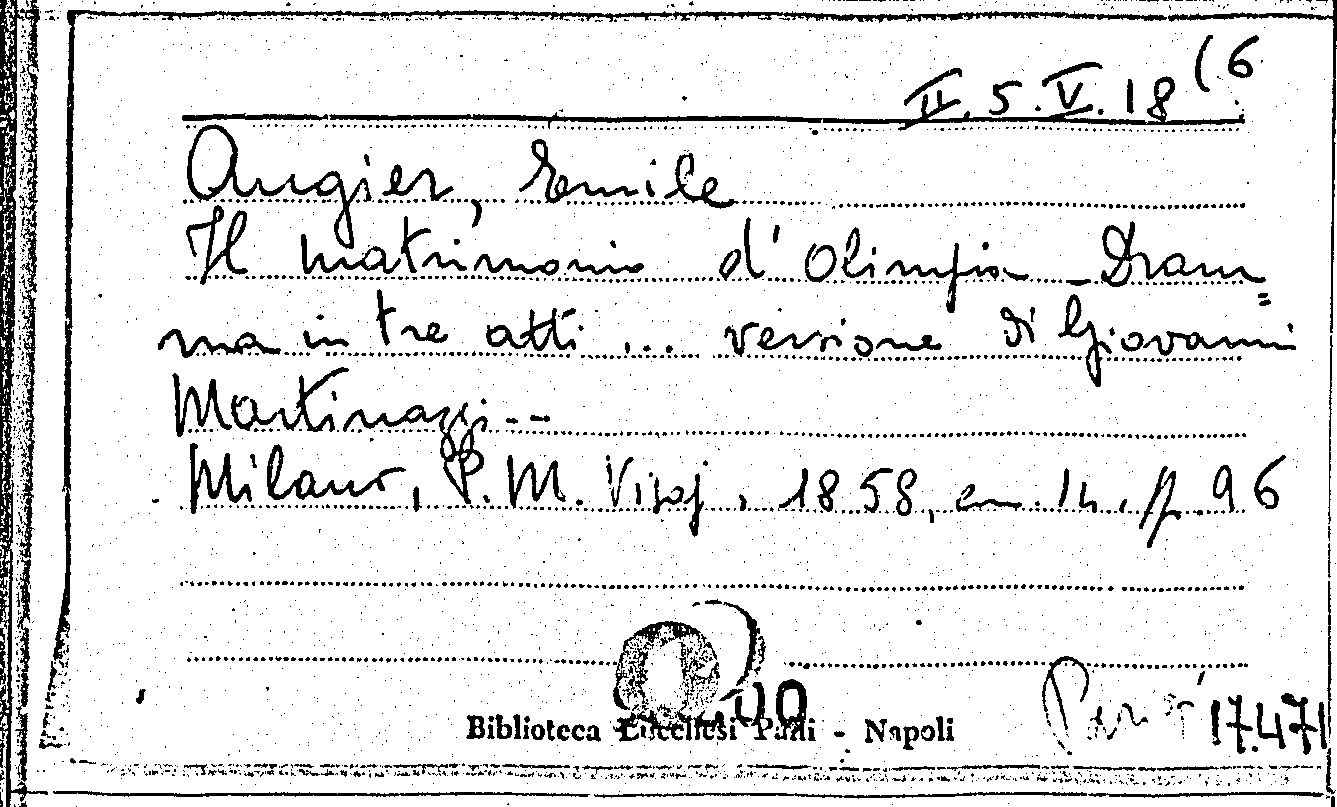 II. 5. V. 18 (6
Augier, Emile
Il matrimonio d'Olimpia - Dram=
ma in tre atti ... versione di Giovanni
Martinazzi --
Milano, P. M. Visaj, 1858, cm. 14, pp. 96
Biblioteca Lucchesi Palli - Napoli
17.471